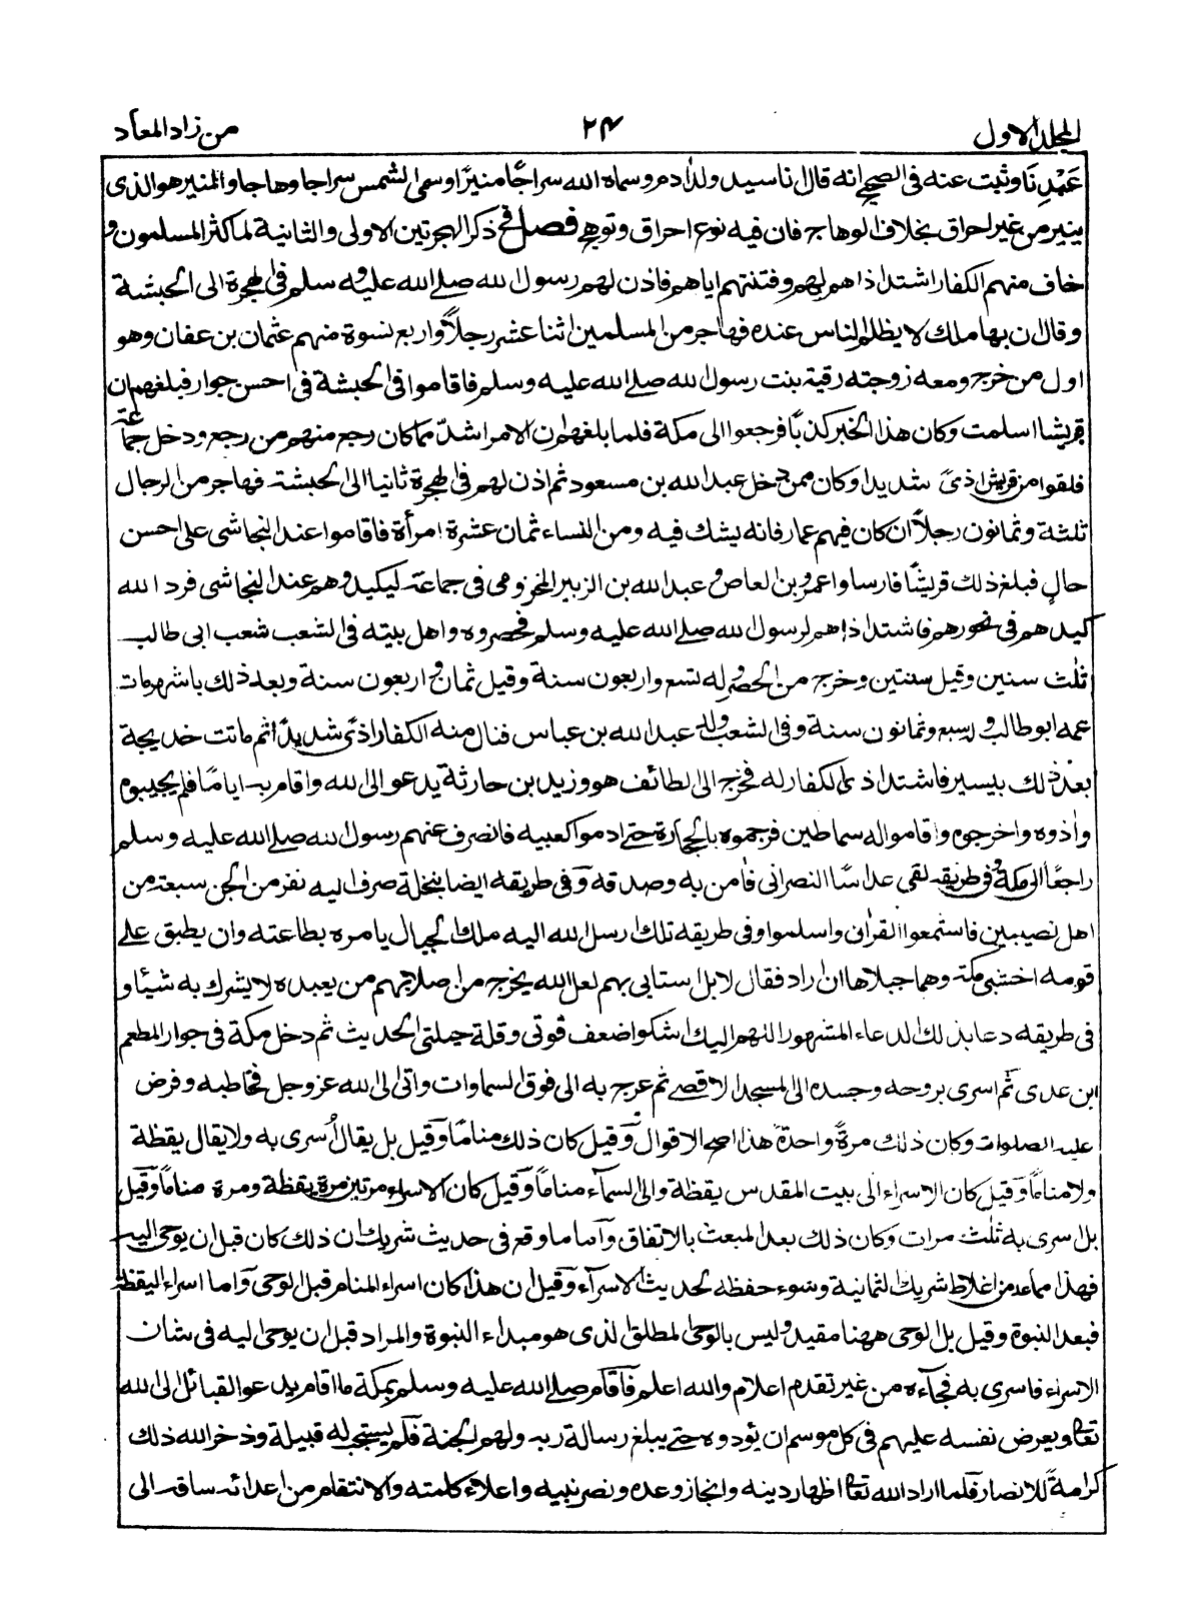 المجلد الاول
۲۴
من زاد المعاد
عَبْدِنَا وثبت عنه فی الصحیح انه قال انا سید ولد اٰدم وسماه الله سراجًا منیرًا وسمی الشمس سراجا وهاجا والمنیر هو الذی
ینیر من غیر احراق بخلاف الوهاج فان فیه نوع احراق وتوهج فصل فی ذکر الهجرتین الاولی والثانیة لما کثر المسلمون و
خاف منهم الکفار اشتد اذاهم لهم وفتنتهم ایاهم فاذن لهم رسول الله صلے الله علیه وسلم فی الهجرة الی الحبشة
وقال ان بها ملک لا یظلم الناس عنده فهاجر من المسلمین اثنا عشر رجلاً واربع نسوة منهم عثمان بن عفان وهو
اول من خرج ومعه زوجته رقیة بنت رسول الله صلے الله علیه وسلم فاقاموا فی الحبشة فی احسن جوار فبلغهم ان
قریشا اسلمت وکان هذا الخبر کذبًا فرجعوا الی مکة فلما بلغهم ان الامر اشدّ مما کان رجع منهم من رجع ودخل جماعة
فلقوا من قریش اذیً شدیدا وکان ممن دخل عبد الله بن مسعود ثم اذن لهم فی الهجرة ثانیا الی الحبشة فهاجر من الرجال
ثلثة وثمانون رجلاً ان کان فیهم عمار فانه یشک فیه ومن النساء ثمان عشرة امرأة فاقاموا عند النجاشی علی احسن
حالٍ فبلغ ذلک قریشًا فارساوا عمرو بن العاص و عبد الله بن الزبیر المخزومی فی جماعة لیکیدوهم عند النجاشی فرد الله
کیدهم فی نحورهم فاشتد اذاهم لرسول الله صلے الله علیه وسلم فحصروه واهل بیته فی الشعب شعب ابی طالب
ثلٰث سنین وقیل سنتین وخرج من الحصر وله تسع واربعون سنة وقیل ثمان واربعون سنة وبعد ذلک باشهر مات
عمه ابو طالب وله سبع وثمانون سنة وفی الشعب ولد عبد الله بن عباس فنال منه الکفار اذی شدیدًا ثم ماتت خدیجة
بعد ذلک بیسیر فاشتد اذی الکفار له فخرج الی الطائف هو وزید بن حارثة یدعو الی الله واقام به ایامًا فلم یجیبوه
واٰذوه واخرجوه واقاموا له سماطین فرجموه بالحجارة حتے ادموا کعبیه فانصرف عنهم رسول الله صلے الله علیه وسلم
راجعًا الی مکة وفی طریقه لقی عداسًا النصرانی فاٰمن به وصدقه وفی طریقه ایضا بنخلة صرف الیه نفر من الجن سبعة من
اهل نصیبین فاستمعوا القراٰن واسلموا وفی طریقه تلک ارسل الله الیه ملک الجبال یامره بطاعته وان یطبق علے
قومه اخشبی مکة وهما جبلاها ان اراد فقال لا بل استانی بهم لعل الله یخرج من اصلابهم من یعبده لا یشرک به شیئا و
فی طریقه دعا بذلک الدعاء المشهور اللهم الیک اشکو اضعف قوتی وقلة حیلتی الحدیث ثم دخل مکة فی جوار المطعم
ابن عدی ثم اسری بروحه وجسده الی المسجد الاقصے ثم عرج به الی فوق السماوات واتی الی الله عز وجل فخاطبه وفرض
علیه الصلوات وکان ذلک مرةً واحدةً هذا اصح الاقوال وقیل کان ذلک منامًا وقیل بل یقال اُسری به ولا یقال یقظة
ولا منامًا وقیل کان الاسراء الی بیت المقدس یقظة والی السمآء منامًا وقیل کان الاسراء مرتین مرة یقظة ومرة منامًا وقیل
بل اسری به ثلٰث مرات وکان ذلک بعد المبعث بالاتفاق وآما ما وقع فی حدیث شریک ان ذلک کان قبل ان یوحی الیه
فهذا مما عد من اغلاط شریک الثمانیة وسوء حفظه لحدیث الاسرآء وقیل ان هذا کان اسراء المنام قبل الوحی وآما اسراء الیقظة
فبعد النبوة وقیل بل الوحی ههنا مقید ولیس بالوحی المطلق الذی هو مبداء النبوة والمراد قبل ان یوحی الیه فی شان
الاسراء فاسری به فجآءه من غیر تقدم اعلام والله اعلم فآقام صلے الله علیه وسلم بمکة ما اقام یدعو القبائل الی الله
تعالی ویعرض نفسه علیهم فی کل موسم ان یؤدوه حتے یبلغ رسالة ربه ولهم الجنة فلم یستجب له قبیلة وذخر الله ذلک
کرامةً للانصار فلما اراد الله تعالی اظهار دینه وانجاز وعده ونصر نبیه واعلاء کلمته والانتقام من اعدائه ساقه الی